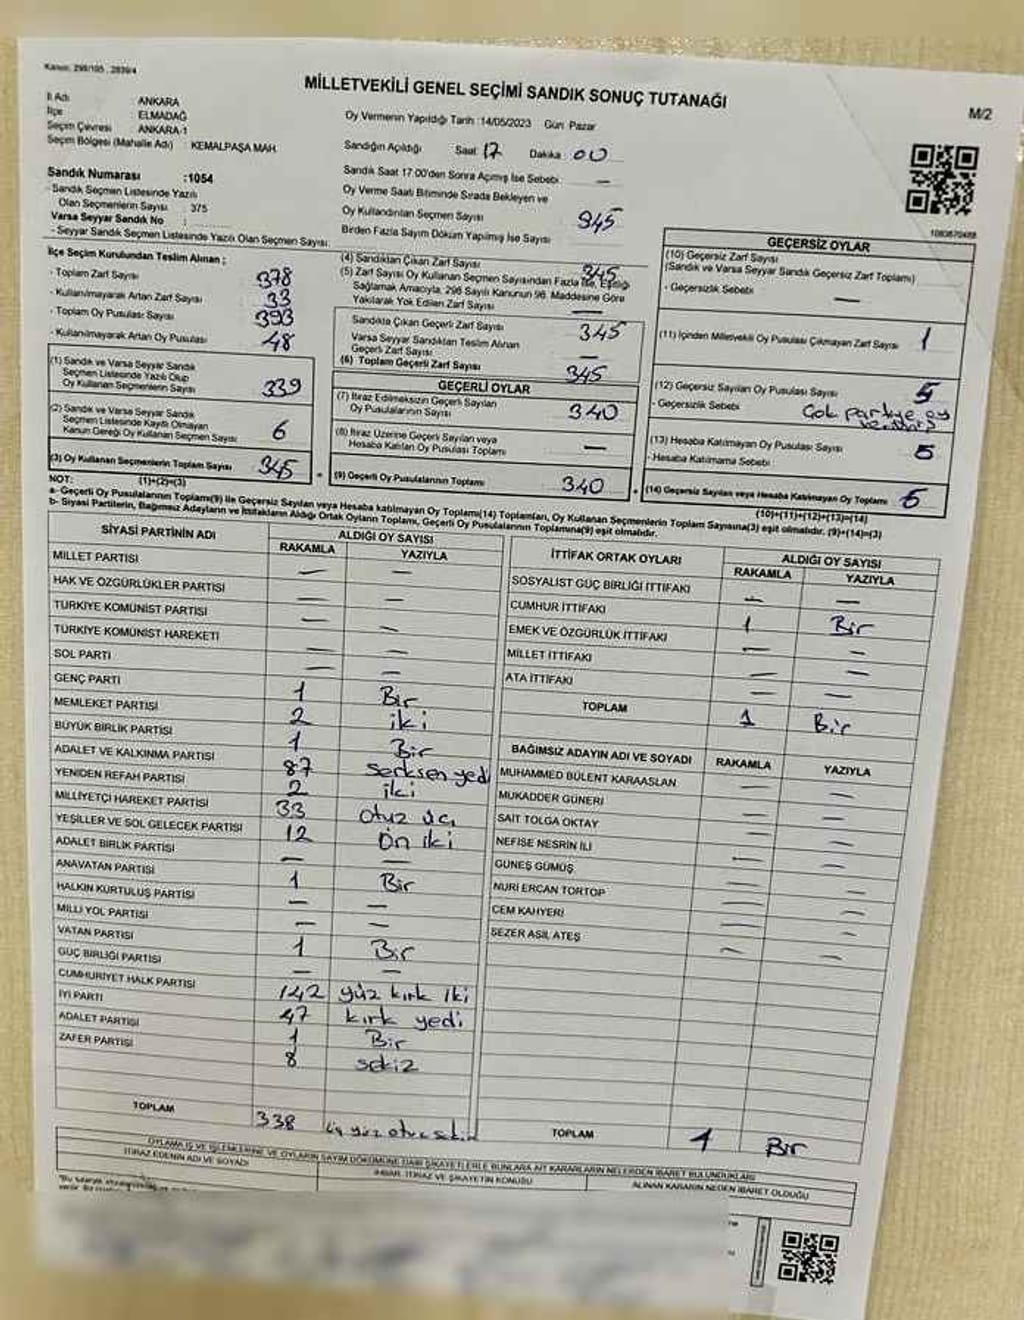 Kanun: 298/105 , 2839/4
MİLLETVEKİLİ GENEL SEÇİMİ SANDIK SONUÇ TUTANAĞI
M/2
İl Adı : ANKARA
İlçe : ELMADAĞ
Seçim Çevresi : ANKARA-1
Seçim Bölgesi (Mahalle Adı) : KEMALPAŞA MAH.
Oy Vermenin Yapıldığı Tarih :14/05/2023 Gün: Pazar
Sandığın Açıldığı Saat 17 Dakika 00
Sandık Saat 17:00'den Sonra Açılmış İse Sebebi: —
Oy Verme Saati Bitiminde Sırada Bekleyen ve
Oy Kullandırılan Seçmen Sayısı
Birden Fazla Sayım Döküm Yapılmış İse Sayısı
Sandık Numarası :1054
- Sandık Seçmen Listesinde Yazılı
Olan Seçmenlerin Sayısı : 375
Varsa Seyyar Sandık No :
- Seyyar Sandık Seçmen Listesinde Yazılı Olan Seçmen Sayısı:
İlçe Seçim Kurulundan Teslim Alınan ;
- Toplam Zarf Sayısı 378
- Kullanılmayarak Artan Zarf Sayısı 33
- Toplam Oy Pusulası Sayısı 393
- Kullanılmayarak Artan Oy Pusulası 48
(1) Sandık ve Varsa Seyyar Sandık
Seçmen Listesinde Yazılı Olup
Oy Kullanan Seçmenlerin Sayısı 339
(2) Sandık ve Varsa Seyyar Sandık
Seçmen Listesinde Kayıtlı Olmayan
Kanun Gereği Oy Kullanan Seçmen Sayısı 6
(3) Oy Kullanan Seçmenlerin Toplam Sayısı 345
(1)+(2)=(3)
(4) Sandıktan Çıkan Zarf Sayısı 345
(5) Zarf Sayısı Oy Kullanan Seçmen Sayısından Fazla İse, Eşitliği
Sağlamak Amacıyla, 298 Sayılı Kanunun 98. Maddesine Göre
Yakılarak Yok Edilen Zarf Sayısı —
Sandıkta Çıkan Geçerli Zarf Sayısı 345
Varsa Seyyar Sandıktan Teslim Alınan
Geçerli Zarf Sayısı —
(6) Toplam Geçerli Zarf Sayısı 345
GEÇERLİ OYLAR
(7) İtiraz Edilmeksizin Geçerli Sayılan
Oy Pusulalarının Sayısı 340
(8) İtiraz Üzerine Geçerli Sayılan veya
Hesaba Katılan Oy Pusulası Toplamı —
(9) Geçerli Oy Pusulalarının Toplamı 340
GEÇERSİZ OYLAR
(10) Geçersiz Zarf Sayısı
(Sandık ve Varsa Seyyar Sandık Geçersiz Zarf Toplamı)
- Geçersizlik Sebebi —
(11) İçinden Milletvekili Oy Pusulası Çıkmayan Zarf Sayısı 1
(12) Geçersiz Sayılan Oy Pusulası Sayısı 5
- Geçersizlik Sebebi Çok partiye oy
(13) Hesaba Katılmayan Oy Pusulası Sayısı 5
- Hesaba Katılmama Sebebi
(14) Geçersiz Sayılan veya Hesaba Katılmayan Oy Toplamı
(10)+(11)+(12)+(13)=(14)
NOT:
a- Geçerli Oy Pusulalarının Toplamı(9) ile Geçersiz Sayılan veya Hesaba katılmayan Oy Toplamı(14) Toplamları, Oy Kullanan Seçmenlerin Toplam Sayısına(3) eşit olmalıdır. (9)+(14)=(3)
b- Siyasi Partilerin, Bağımsız Adayların ve İttifakların Aldığı Ortak Oyların Toplamı, Geçerli Oy Pusulalarının Toplamına(9) eşit olmalıdır.
SİYASİ PARTİNİN ADI
ALDIĞI OY SAYISI
RAKAMLA YAZIYLA
MİLLET PARTİSİ — —
HAK VE ÖZGÜRLÜKLER PARTİSİ — —
TÜRKİYE KOMÜNİST PARTİSİ —
TÜRKİYE KOMÜNİST HAREKETİ —
SOL PARTİ — —
GENÇ PARTİ — —
MEMLEKET PARTİSİ 1 Bir
BÜYÜK BİRLİK PARTİSİ 2 iki
ADALET VE KALKINMA PARTİSİ 1 Bir
YENİDEN REFAH PARTİSİ 87 Serksen yedi
MİLLİYETÇİ HAREKET PARTİSİ 2 iki
YEŞİLLER VE SOL GELECEK PARTİSİ 33 Otuz üç
ADALET BİRLİK PARTİSİ 12 On iki
ANAVATAN PARTİSİ — —
HALKIN KURTULUŞ PARTİSİ 1 Bir
MİLLİ YOL PARTİSİ — —
VATAN PARTİSİ — —
GÜÇ BİRLİĞİ PARTİSİ 1 Bir
CUMHURİYET HALK PARTİSİ — —
İYİ PARTİ 142 yüz kırk iki
ADALET PARTİSİ 47 kırk yedi
ZAFER PARTİSİ 1 Bir
8 sekiz
TOPLAM 338 üç yüz otuz sekiz
İTTİFAK ORTAK OYLARI
ALDIĞI OY SAYISI
RAKAMLA YAZIYLA
SOSYALİST GÜÇ BİRLİĞİ İTTİFAKI — —
CUMHUR İTTİFAKI 1 Bir
EMEK VE ÖZGÜRLÜK İTTİFAKI — —
MİLLET İTTİFAKI — —
ATA İTTİFAKI — —
TOPLAM 1 Bir
BAĞIMSIZ ADAYIN ADI VE SOYADI RAKAMLA YAZIYLA
MUHAMMED BÜLENT KARAASLAN — —
MUKADDER GÜNERİ — —
SAİT TOLGA OKTAY — —
NEFİSE NESRİN İLİ — —
GÜNEŞ GÜMÜŞ — —
NURİ ERCAN TORTOP — —
CEM KAHYERİ — —
SEZER ASİL ATEŞ — —
TOPLAM 1 Bir
OYLAMA İŞ VE İŞLEMLERİNE VE OYLARIN SAYIM DÖKÜMÜNE DAİR ŞİKAYETLERLE BUNLARA AİT KARARLARIN NELERDEN İBARET BULUNDUKLARI
İTİRAZ EDENİN ADI VE SOYADI
İHBAR, İTİRAZ VE ŞİKAYETİN KONUSU
ALINAN KARARIN NEDEN İBARET OLDUĞU